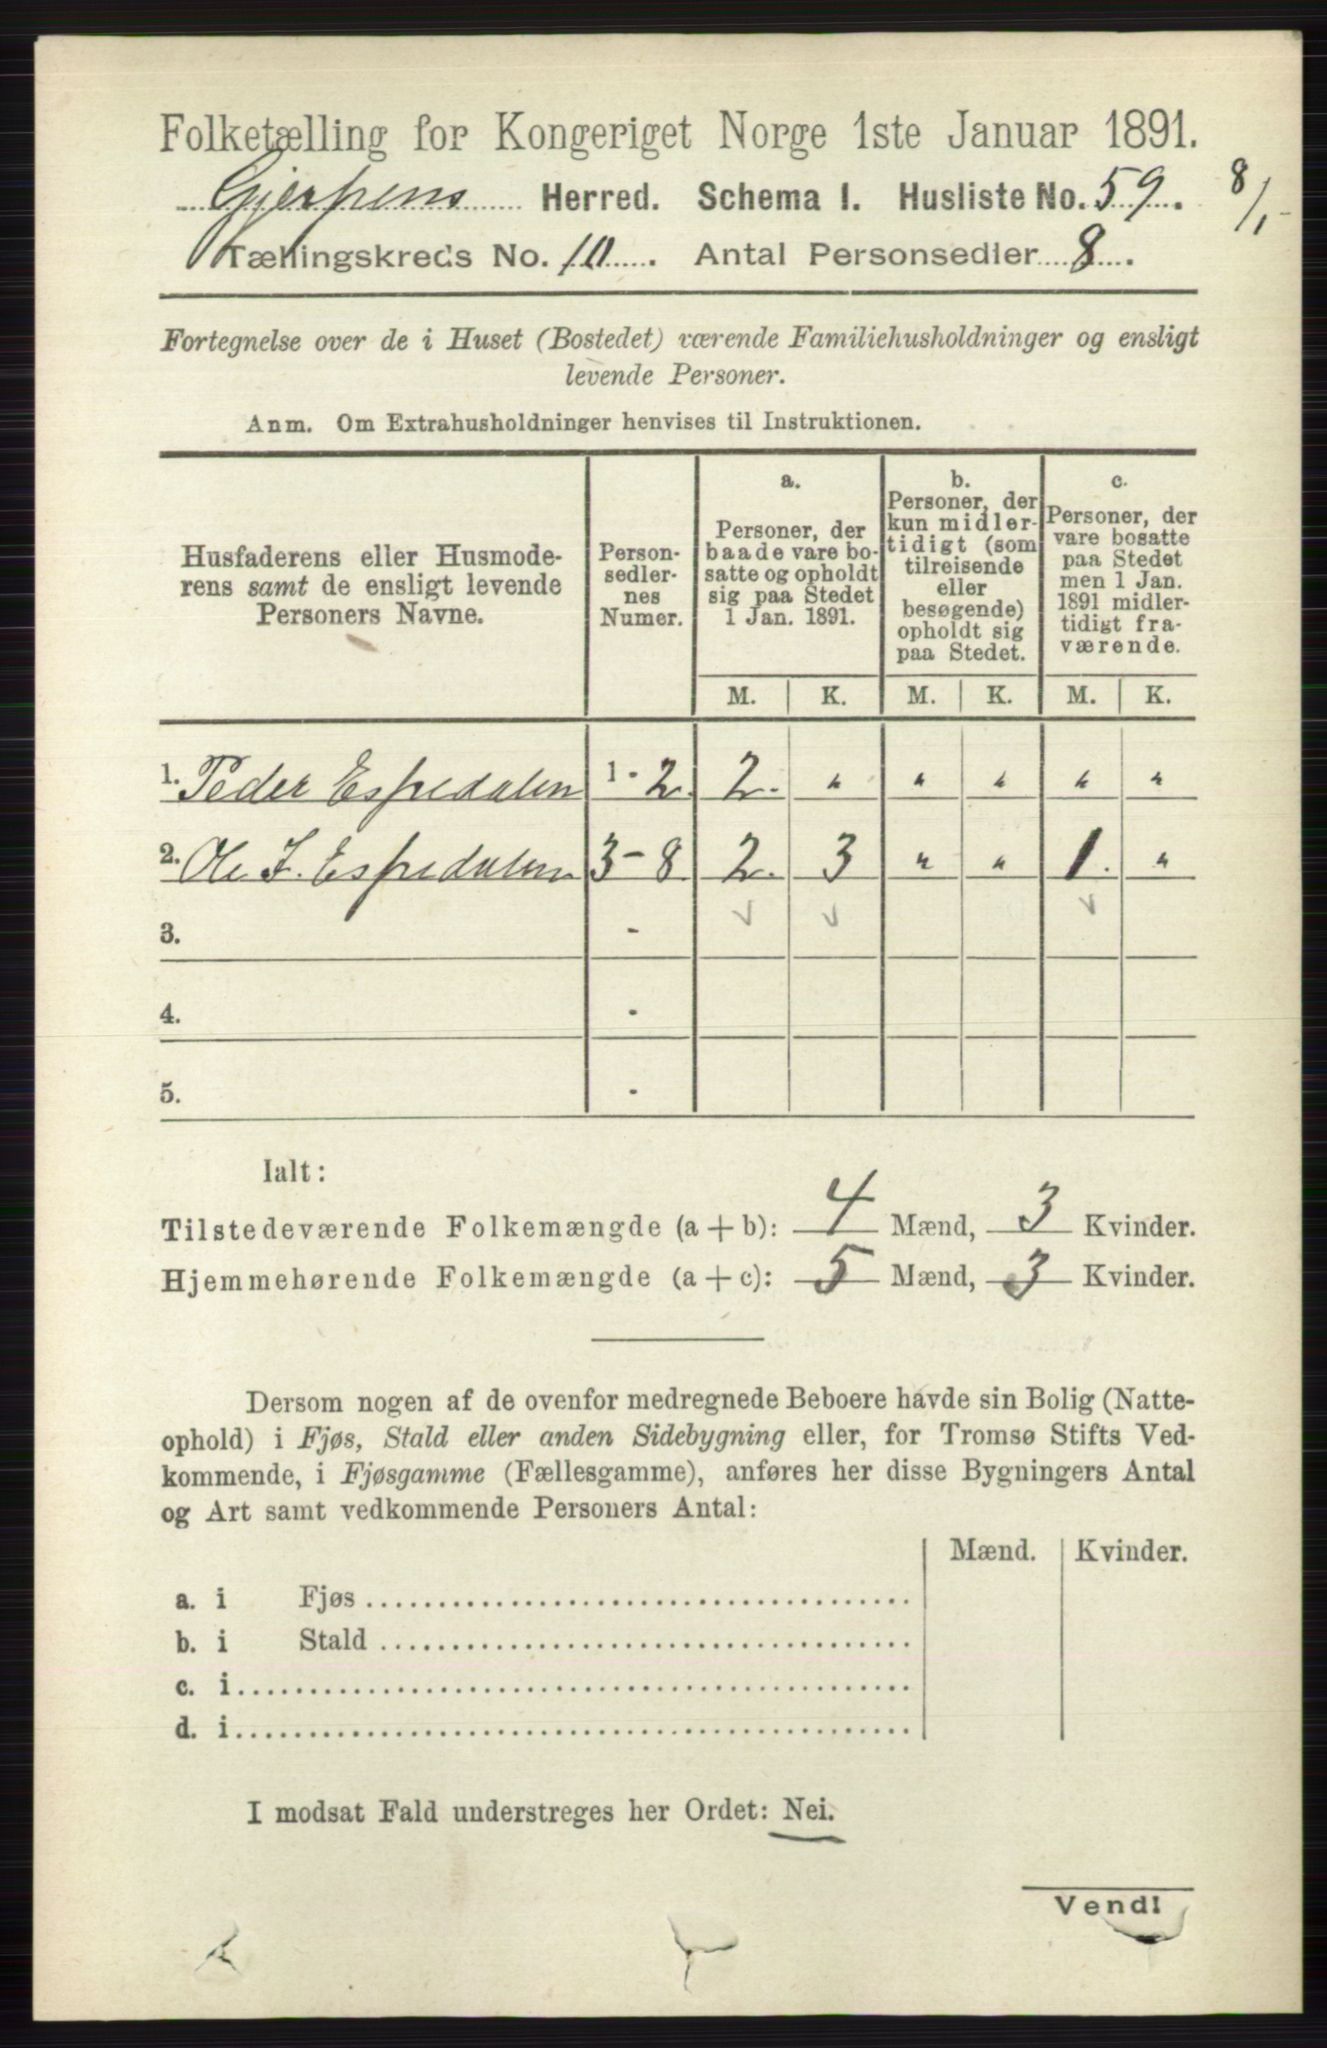 Folketælling for Kongeriget Norge 1ste Januar 1891.
Gjerpens Herred. Schema I. Husliste No. 59. 8/1
Tællingskreds No. 10. Antal Personsedler 8.
Fortegnelse over de i Huset (Bostedet) værende Familiehusholdninger og ensligt
levende Personer.
Anm. Om Extrahusholdninger henvises til Instruktionen.
Husfaderens eller Husmode-
rens samt de ensligt levende
Personers Navne.
Person-
sedler-
nes
Numer.
a.
Personer, der
baade vare bo-
satte og opholdt
sig paa Stedet
1 Jan. 1891.
b.
Personer, der
kun midler-
tidigt (som
tilreisende
eller
besøgende)
opholdt sig
paa Stedet.
c.
Personer, der
vare bosatte
paa Stedet
men 1 Jan.
1891 midler-
tidigt fra-
værende.
M. K. M. K. M. K.
1. Peder Espedalen 1 - 2. 2. " " " " "
2. Ole J. Espedalen 3 - 8 2. 3 " " 1. "
3. -
4. -
5. -
Ialt:
Tilstedeværende Folkemængde (a + b): 4 Mænd, 3 Kvinder.
Hjemmehørende Folkemængde (a + c): 5 Mænd, 3 Kvinder.
Dersom nogen af de ovenfor medregnede Beboere havde sin Bolig (Natte-
ophold) i Fjøs, Stald eller anden Sidebygning eller, for Tromsø Stifts Ved-
kommende, i Fjøsgamme (Fællesgamme), anføres her disse Bygningers Antal
og Art samt vedkommende Personers Antal:
Mænd. Kvinder.
a. i Fjøs
b. i Stald
c. i
d. i
I modsat Fald understreges her Ordet: Nei.
Vend!